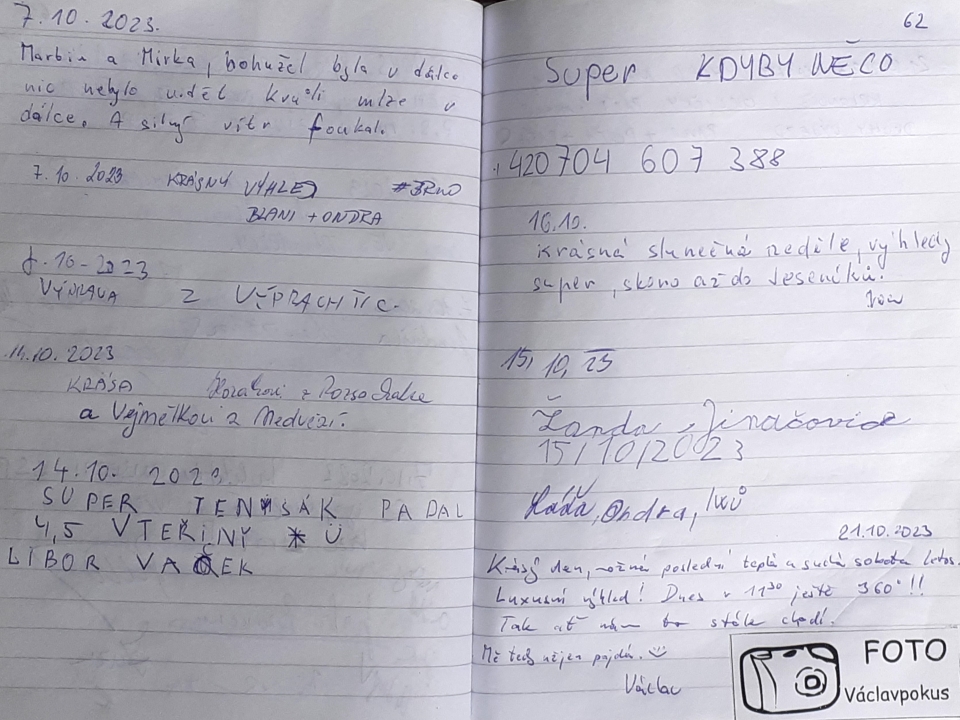 7.10. 2023.
Martin a Mirka, bohužel byla v dálce
nic nebylo vidět kvůli mlze v
dálce. A silný vítr foukal.
7.10.2023 KRÁSNÝ VÝHLED #BRNO
BLANI + ONDRA
10-2023
VÝPRAVA Z
14.10. 2023
KRÁSA
a Vejmělkovi z Medvězí.
14.10. 2023
SUPER TENISÁK PADAL
4,5 VTEŘINY * Ü
LIBOR VAŠEK
62
Super KDYBY NĚCO
420704 607 388
16.10.
Krásná slunečná neděle, výhledy
super, skoro až do Jeseníků.
15, 10, 23
Žanda, Jinačovice
15/10/2023
Ondra,
21.10.2023
Krásný den, možná poslední teplá a suchá sobota letos.
Luxusní výhled! Dnes v 11³⁰ ještě 360°!!
Tak ať nám to stále chodí.
Mě tedy nejen
Václav
FOTO
Václavpokus